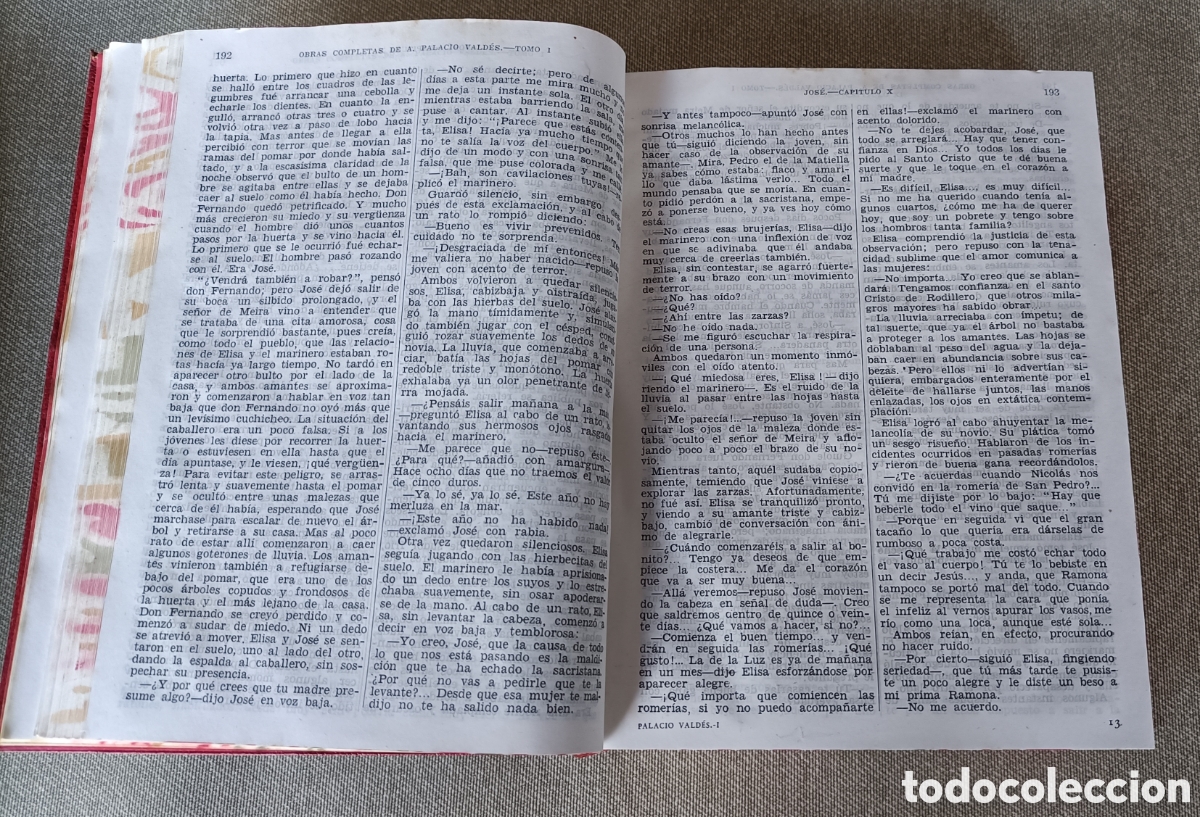 192
OBRAS COMPLETAS DE A. PALACIO VALDÉS.—TOMO I
huerta. Lo primero que hizo en cuanto
se halló entre los cuadros de las le-
gumbres fué arrancar una cebolla y
echarle los dientes. En cuanto la en-
gulló, arrancó otras tres o cuatro y se
volvió otra vez a paso de lobo hacia
la tapia. Mas antes de llegar a ella
percibió con terror que se movían las
ramas del pomar por donde había sal-
tado, y a la escasísima claridad de la
noche observó que el bulto de un hom-
bre se agitaba entre ellas y se dejaba
caer al suelo como él había hecho. Don
Fernando quedó petrificado. Y mucho
más crecieron su miedo y su vergüenza
cuando el hombre dió unos cuantos
pasos por la huerta y se vino hacia él.
Lo primero que se le ocurrió fué echar-
se al suelo. El hombre pasó rozando
con él. Era José.
"¿Vendrá también a robar?", pensó
don Fernando; pero José dejó salir de
su boca un silbido prolongado, y el
señor de Meira vino a entender que
se trataba de una cita amorosa, cosa
que le sorprendió bastante, pues creía,
como todo el pueblo, que las relacio-
nes de Elisa y el marinero estaban ro-
tas hacía ya largo tiempo. No tardó en
aparecer otro bulto por el lado de la
casa, y ambos amantes se aproxima-
ron y comenzaron a hablar en voz tan
baja que don Fernando no oyó más que
un levísimo cuchicheo. La situación del
caballero era un poco falsa. Si a los
jóvenes les diese por recorrer la huer-
ta o estuviesen en ella hasta que el
día apuntase, y le viesen, ¡qué vergüen-
za! Para evitar este peligro, se arras-
tró lenta y suavemente hasta el pomar
y se ocultó entre unas malezas que
cerca de él había, esperando que José
marchase para escalar de nuevo el ár-
bol y retirarse a su casa. Mas al poco
rato de estar allí comenzaron a caer
algunos goterones de lluvia. Los aman-
tes vinieron también a refugiarse de-
bajo del pomar, que era uno de los
pocos árboles copudos y frondosos de
la huerta y el más lejano de la casa.
Don Fernando se creyó perdido y co-
menzó a sudar de miedo. Ni un dedo
se atrevió a mover. Elisa y José se sen-
taron en el suelo, uno al lado del otro,
dando la espalda al caballero, sin sos-
pechar su presencia.
—¿Y por qué crees que tu madre pre-
sume algo?—dijo José en voz baja.
—No sé decirte; pero de algunos
días a esta parte me mira mucho y no
me deja un instante sola. El otro día,
mientras estaba barriendo la sala, me
puse a cantar. Al instante subió
y me dijo: "Parece que estás contenta,
Elisa! Hacía ya mucho tiempo que
no te salía la voz del cuerpo." Me lo
dijo de un modo y con una sonrisa tan
falsa, que me puse colorada y me callé.
—¡Bah, son cavilaciones tuyas!—re-
plicó el marinero.
Guardó silencio, sin embargo, des-
pués de esta exclamación, y al cabo de
un rato lo rompió diciendo:
—Bueno es vivir prevenidos. Ten
cuidado no te sorprenda.
—¡Desgraciada de mí entonces! Más
me valiera no haber nacido—repuso la
joven con acento de terror.
Ambos volvieron a quedar silencio-
sos. Elisa, cabizbaja y distraída, juga-
ba con las hierbas del suelo. José alar-
gó la mano tímidamente y, simulan-
do también jugar con el césped, consi-
guió rozar suavemente los dedos de su
novia. La lluvia, que comenzaba a arre-
ciar, batía las hojas del pomar con
redoble triste y monótono. La huerta
exhalaba ya un olor penetrante de tie-
rra mojada.
—¿Pensáis salir mañana a la mar?
—preguntó Elisa al cabo de un rato, le-
vantando sus hermosos ojos rasgados
hacia el marinero.
—Me parece que no—repuso éste—.
¿Para qué?—añadió con amargura—.
Hace ocho días que no traemos el valor
de cinco duros.
—Ya lo sé, ya lo sé. Este año no hay
merluza en la mar.
—¡Este año no ha habido nada!—
exclamó José con rabia.
Otra vez quedaron silenciosos. Elisa
seguía jugando con las hierbecitas del
suelo. El marinero le había aprisiona-
do un dedo entre los suyos y lo estre-
chaba suavemente, sin osar apoderar-
se de la mano. Al cabo de un rato, Eli-
sa, sin levantar la cabeza, comenzó a
decir en voz baja y temblorosa:
—Yo creo, José, que la causa de todo
lo que nos está pasando es la maldi-
ción que te ha echado la sacristana.
¿Por qué no vas a pedirle que te la
levante?... Desde que esa mujer te mal-
dijo no te ha salido nada bien.
JOSÉ.—CAPITULO X
193
—Y antes tampoco—apuntó José con
sonrisa melancólica.
—Otros muchos lo han hecho antes
que tú—siguió diciendo la joven, sin
hacer caso de la observación de su
amante—. Mira, Pedro el de la Matiella
ya sabes cómo estaba: flaco y amari-
llo que daba lástima verlo... Todo el
mundo pensaba que se moría. En cuan-
to pidió perdón a la sacristana, empe-
zó a ponerse bueno, y ya ves hoy cómo
está.
—No creas esas brujerías, Elisa—dijo
el marinero con una inflexión de voz
en que se adivinaba que él andaba
muy cerca de creerlas también.
Elisa, sin contestar, se agarró fuerte-
mente a su brazo con un movimiento
de terror.
—¿No has oído?
—¿Qué?
—¿Ahí entre las zarzas?
—No he oído nada.
—Se me figuró escuchar la respira-
ción de una persona.
Ambos quedaron un momento inmó-
viles con el oído atento.
—¡Qué miedosa eres, Elisa!—dijo
riendo el marinero—. Es el ruido de la
lluvia al pasar entre las hojas hasta
el suelo.
—¡Me parecía!...—repuso la joven sin
quitar los ojos de la maleza donde es-
taba oculto el señor de Meira y aflo-
jando poco a poco el brazo de su no-
vio.
Mientras tanto, aquél sudaba copio-
samente, temiendo que José viniese a
explorar las zarzas. Afortunadamente,
no fué así. Elisa se tranquilizó pronto,
y viendo a su amante triste y cabiz-
bajo, cambió de conversación con áni-
mo de alegrarle.
—¿Cuándo comenzaréis a salir al bo-
nito?... Tengo ya deseos de que em-
piece la costera... Me da el corazón
que va a ser muy buena...
—Allá veremos—repuso José movien-
do la cabeza en señal de duda—. Creo
que saldremos dentro de quince o vein-
te días... ¿Qué vamos a hacer, si no?...
—Comienza el buen tiempo... y ven-
drán en seguida las romerías... ¡Qué
gusto!... La de la Luz es ya de mañana
en un mes—dijo Elisa esforzándose por
aparecer alegre.
—¡Qué importa que comiencen las
romerías, si yo no puedo acompañarte
en ellas!—exclamó el marinero con
acento dolorido.
—No te dejes acobardar, José, que
todo se arreglará... Hay que tener con-
fianza en Dios... Yo todos los días le
pido al Santo Cristo que te dé buena
suerte y que le toque en el corazón a
mi madre.
—Es difícil, Elisa..., es muy difícil...
Si no me ha querido cuando tenía
algunos cuartos, ¿cómo me ha de querer
hoy, que soy un pobrete y tengo sobre
los hombros tanta familia?
Elisa comprendió la justicia de esta
observación; pero repuso con la tena-
cidad sublime que el amor comunica a
las mujeres:
—No importa... Yo creo que se ablan-
dará. Tengamos confianza en el santo
Cristo de Rodillero, que otros mila-
gros mayores ha sabido obrar.
La lluvia arreciaba con ímpetu; de
tal suerte, que ya el árbol no bastaba
a proteger a los amantes. Las hojas se
doblaban al peso del agua y la deja-
ban caer en abundancia sobre sus ca-
bezas. Pero ellos ni lo advertían si-
quiera, embargados enteramente por el
deleite de hallarse juntos, las manos
enlazadas, los ojos en extática contem-
plación.
Elisa logró al cabo ahuyentar la me-
lancolía de su novio. Su plática tomó
un sesgo risueño. Hablaron de los in-
cidentes ocurridos en pasadas romerías
y rieron de buena gana recordándolos.
—¿Te acuerdas cuando Nicolás nos
convidó en la romería de San Pedro?...
Tú me dijiste por lo bajo: "Hay que
beberle todo el vino que saque..."
—Porque en seguida vi que el gran
tacaño lo que quería era dárselas de
rumboso a poca costa.
—¡Qué trabajo me costó echar todo
el vaso al cuerpo! Tú te lo bebiste en
un decir Jesús..., y anda, que Ramona
tampoco se portó mal del todo. Cuando
se me representa la cara que ponía
el infeliz al vernos apurar los vasos, me
río como una loca, aunque esté sola...
Ambos reían, en efecto, procurando
no hacer ruido.
—Por cierto—siguió Elisa, fingiendo
seriedad—, que tú más tarde te pusis-
te un poco alegre y le diste un beso a
mi prima Ramona.
—No me acuerdo.
PALACIO VALDÉS.-I
13
todocoleccion